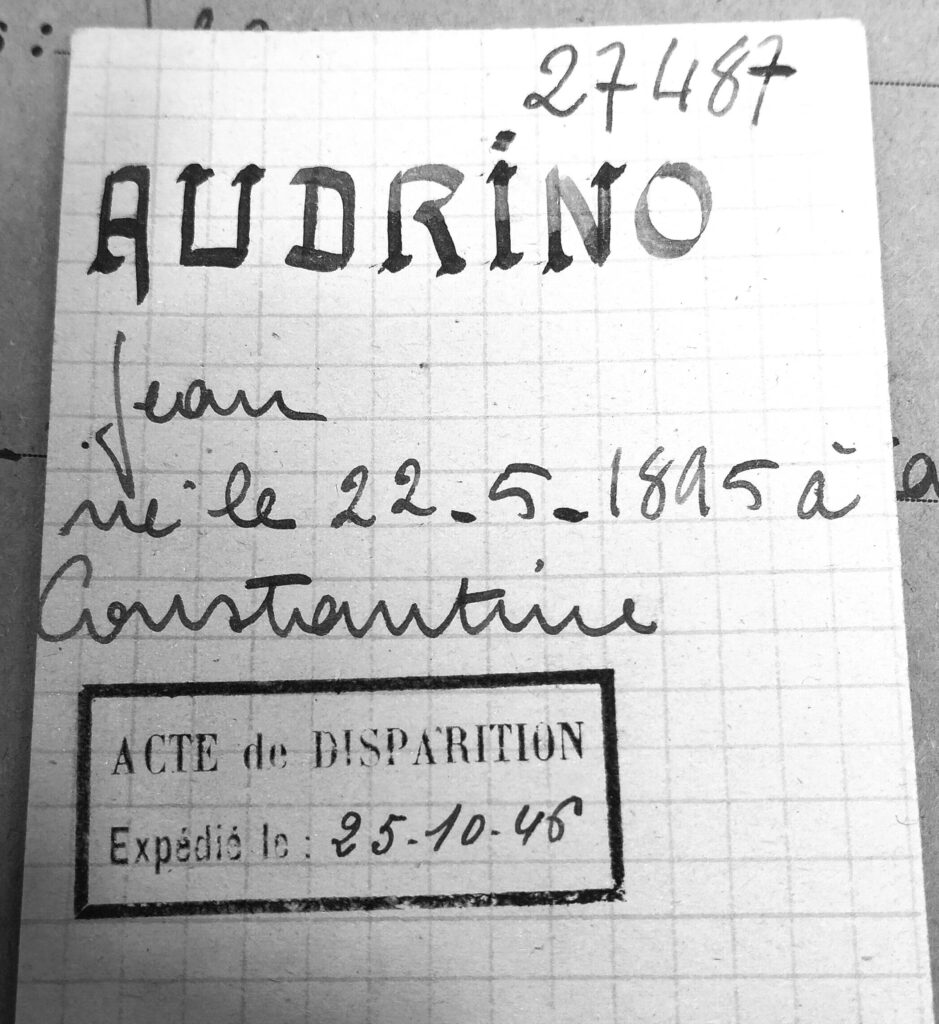 27487
AUDRiNO
Jean
né le 22-5-1895 à
Constantine
ACTE de DISPARITION
Expédié le : 25-10-46